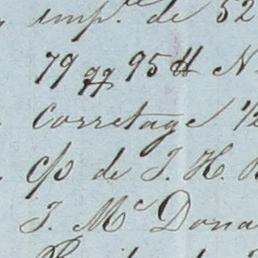 imp.te de 52
79 qq 95 ℔ N
Corretage ½
c/o de J. H.
J. Mc Dona